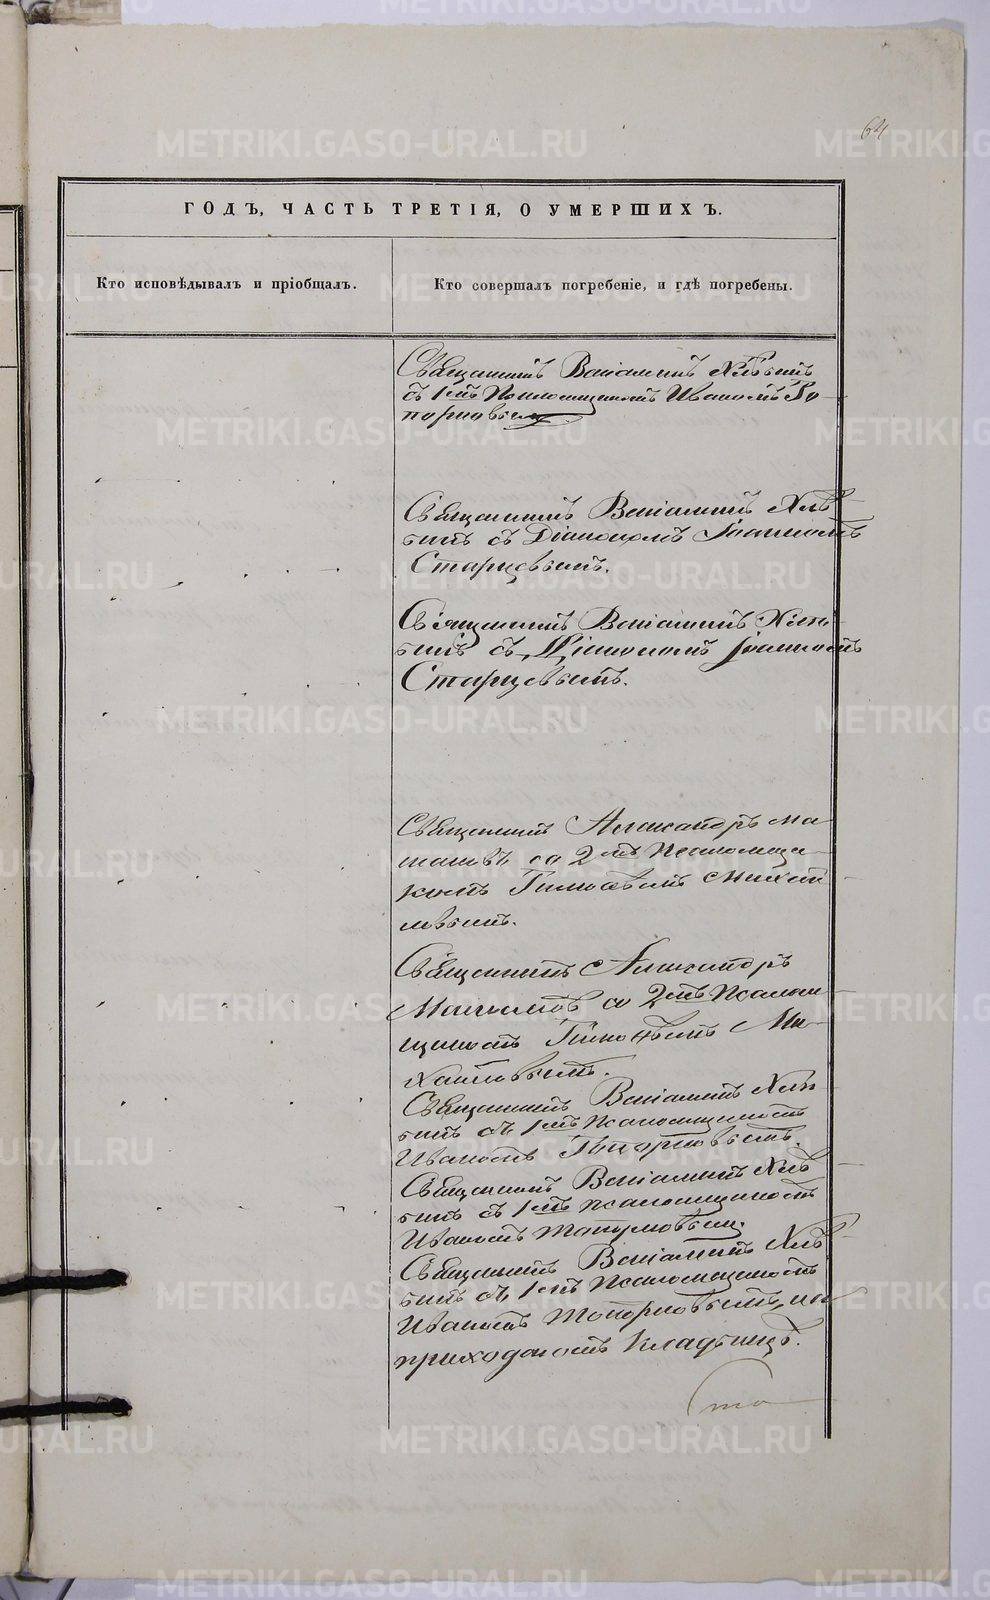 64
ГОДЪ, ЧАСТЬ ТРЕТІЯ, О УМЕРШИХЪ.
Кто исповѣдывалъ и пріобщалъ.
Кто совершалъ погребеніе, и гдѣ погребены.
Священникъ Веніаминъ Хлѣбинъ
съ 1мъ Псаломщикомъ Иваномъ То-
порковымъ
Священникъ Веніаминъ Хлѣ-
бинъ съ Діакономъ Іоанномъ
Старцевымъ.
Священникъ Веніаминъ Хлѣ-
бинъ съ Діакономъ Іоанномъ
Старцевымъ.
Священникъ Александръ
со 2мъ Псаломщи-
комъ Тимофѣемъ Михай-
ловымъ.
Священникъ Александръ
со 2мъ Псалом-
щикомъ Тимофѣемъ Ми-
хайловымъ.
Священникъ Веніаминъ Хлѣ-
бинъ съ 1мъ Псаломщикомъ
Иваномъ Топорковымъ.
Священникъ Веніаминъ Хлѣ-
бинъ съ 1мъ псаломщикомъ
Иваномъ Топорковым.
Священникъ Веніаминъ Хлѣ-
бинъ съ 1мъ Псаломщикомъ
Иваномъ Топорковымъ, на
приходскомъ кладбищѣ.
METRIKI.GASO-URAL.RU